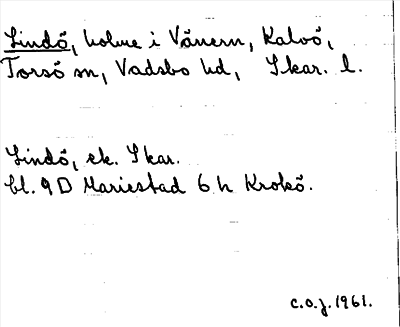 Lindö, holme i Vänern, Kalvö,
Torsö sn, Vadsbo hd, Skar. l.
Lindö, ek. Skar.
bl. 9 D Mariestad 6 h Krokö.
c.o.j. 1961.